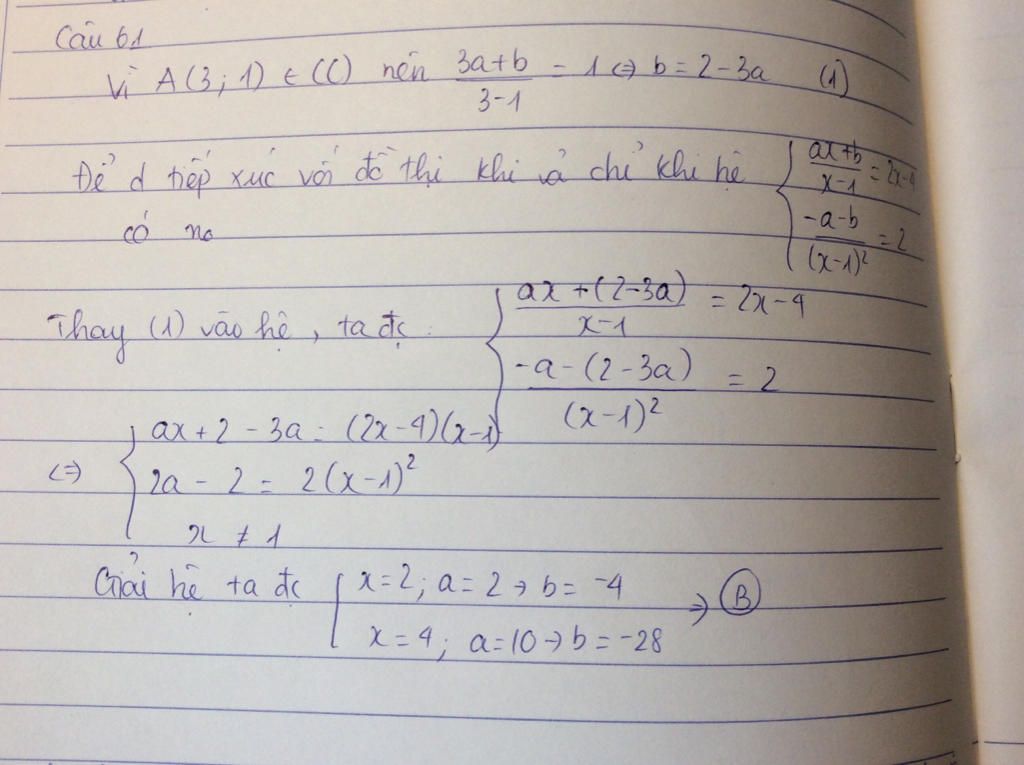 Câu 61
Vì A(3;1) ∈ (C) nên (3a+b)/(3-1) = 1 ⇔ b = 2-3a (1)
Để d tiếp xúc với đồ thị khi và chỉ khi hệ { (ax+b)/(x-1) = 2x-4
có no { (-a-b)/(x-1)² = 2
Thay (1) vào hệ, ta đc: { (ax+(2-3a))/(x-1) = 2x-4
{ (-a-(2-3a))/(x-1)² = 2
⇔ { ax+2-3a = (2x-4)(x-1)
2a-2 = 2(x-1)²
x ≠ 1
Giải hệ ta đc [ x=2; a=2 → b= -4 ⇒ B
x=4; a=10 → b=-28